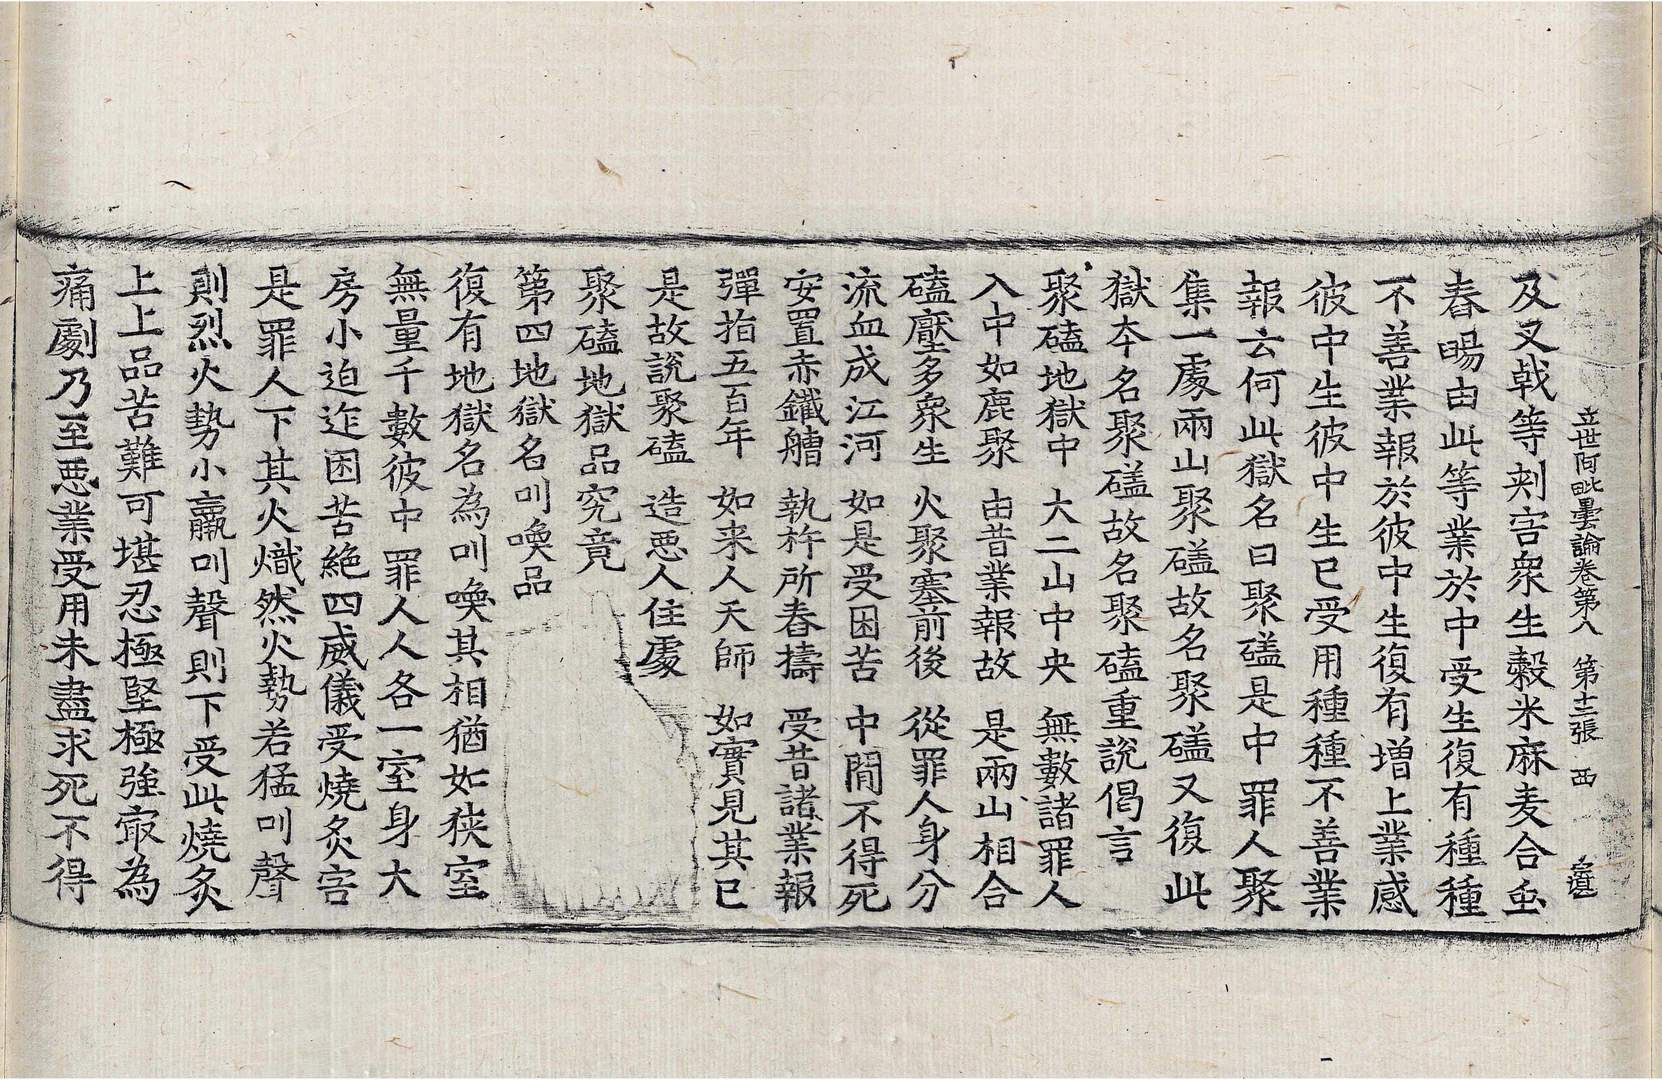 立世阿毗曇論卷第八 第十二張 西
及叉戟等刾害衆生䅽米麻麦合䖝
舂暘由此等業於中受生復有種種
不善業報於彼中生復有増上業感
彼中生彼中生已受用種種不善業
報云何此獄名曰聚礚是中罪人聚
集一處兩山聚礚故名聚礚又復此
獄夲名聚礚故名聚磕重說偈言
聚磕地獄中 大二山中央 無數諸罪人
入中如鹿聚 由昔業報故 是兩山相合
磕壓多衆生 火聚塞前後 從罪人身分
流血成江河 如是受困苦 中閒不得死
安置赤鐵艚 執杵所舂擣 受昔諸業報
彈指五百年 如来人天師 如實見其已
是故說聚磕 造惡人住處
聚磕地獄品究竟
第四地獄名叫喚品
復有地獄名為叫喚其相猶如狹室
無量千數彼中罪人人各一室身大
房小迫迮困苦絶四威儀受燒炙害
是罪人下其火熾然火勢若猛叫聲
則烈火勢小羸叫聲則下受此燒炙
上上品苦難可堪忍極堅極強㝡為
痛劇乃至惡業受用未盡求死不得